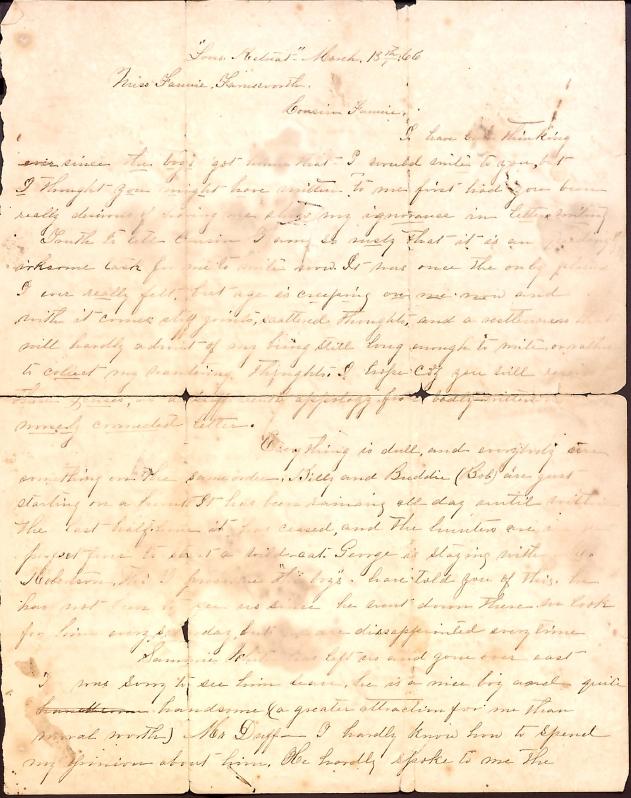 "Lone Retreat" March, 18th/66
Miss Fannie, Farnsworth.
Cousin Fannie,
I have been thinking
ever since the boys got home that I would write to you, but
I thought you might have written to me first had you been
really desirous of having me show my ignorance in letter writing
Truth to tell cousin I am so rusty that it is an
irksome task for me to write now. It was once the only
I ever really felt, but age is creeping on me now and
with it comes stiff joints, scattered thoughts, and a restlessness that
will hardly admit of my being still long enough to write, or rather
to collect my wandering thoughts. I hope Coz you will
apology for badly written
connected letter.
Everything is dull, and everybody
something on the same order. Billy and Buddie (Bob) are just
starting on a hunt. It has been raining all day until within
the last half hour it has ceased, and the hunters are
a wildcat. George is staying with
Robertson, the boys have told you of this. he
has not been to see us since he went down there. we look
for him every day, but are disappointed every time
Sammie has left us and gone over east
I was sorry to see him leave, he is a nice boy and quite
handsome (a greater attraction for me than
moral worth) Mr Duff I hardly know him to spend
my opinion about him. He hardly spoke to me the